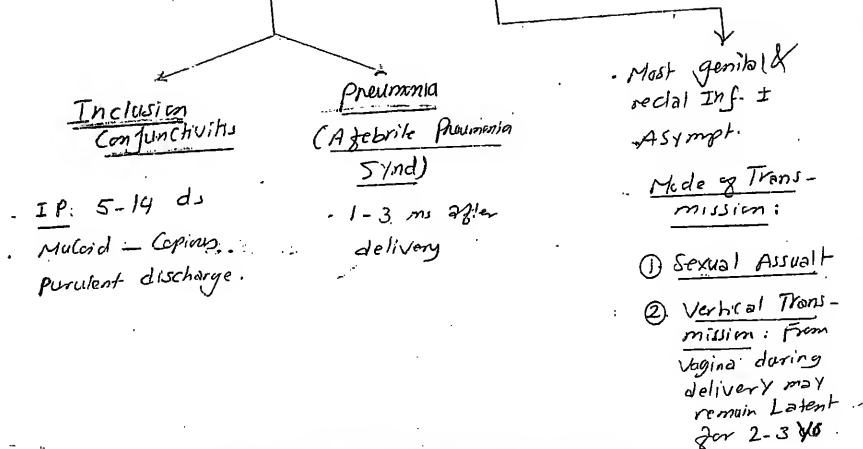 Inclusion
Conjunctivitis
- IP: 5-14 ds
. Mucoid – Copious
purulent discharge.
Pneumonia
(Afebrile Pneumonia
Synd)
- 1-3 ms after
delivery
. Most genital &
rectal Inf. ±
Asympt.
. Mode of Trans-
mission:
① Sexual Assualt
② Vertical Trans-
mission: From
vagina during
delivery may
remain Latent
for 2-3 yrs.